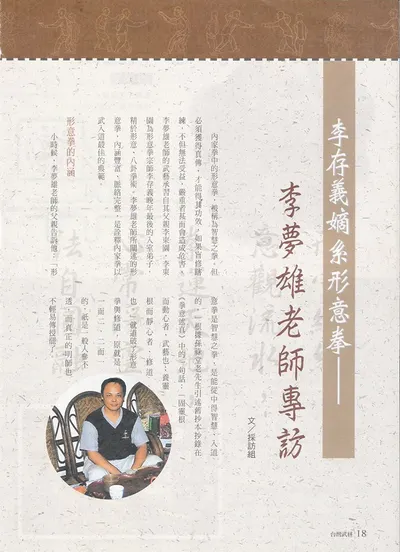 李存義嫡系形意拳——
李夢雄老師專訪
文／採訪組
內家拳中的形意拳，被稱為智慧之拳，但
必須獲得真傳，才能得其功效，如果盲修瞎
練，不但無法受益，嚴重者甚而會造成危害。
李夢雄老師的武藝承習自其父親李東園，李東
園為形意拳宗師李存義晚年最後的入室弟子，
精於形意、八卦拳術，李夢雄老師所闡述的形
意拳，內涵豐富、脈絡完整，是詮釋內家拳以
武入道最佳的典範。
形意拳的內涵
小時候，李夢雄老師的父親告訴他：「形
意拳是智慧之拳、是能從中得智慧，入道
的。」根據孫祿堂老先生引述舊抄本抄錄在
《拳意述真》中的二句話：「固靈根
而動心者，武藝也；養靈
根而靜心者，修道
也。」就道破了形意
拳與修道，原就是
一而二、二而一
的，祇是一般人參不
透，而真正的明師也
不輕易傳授罷了。
台灣武林 18